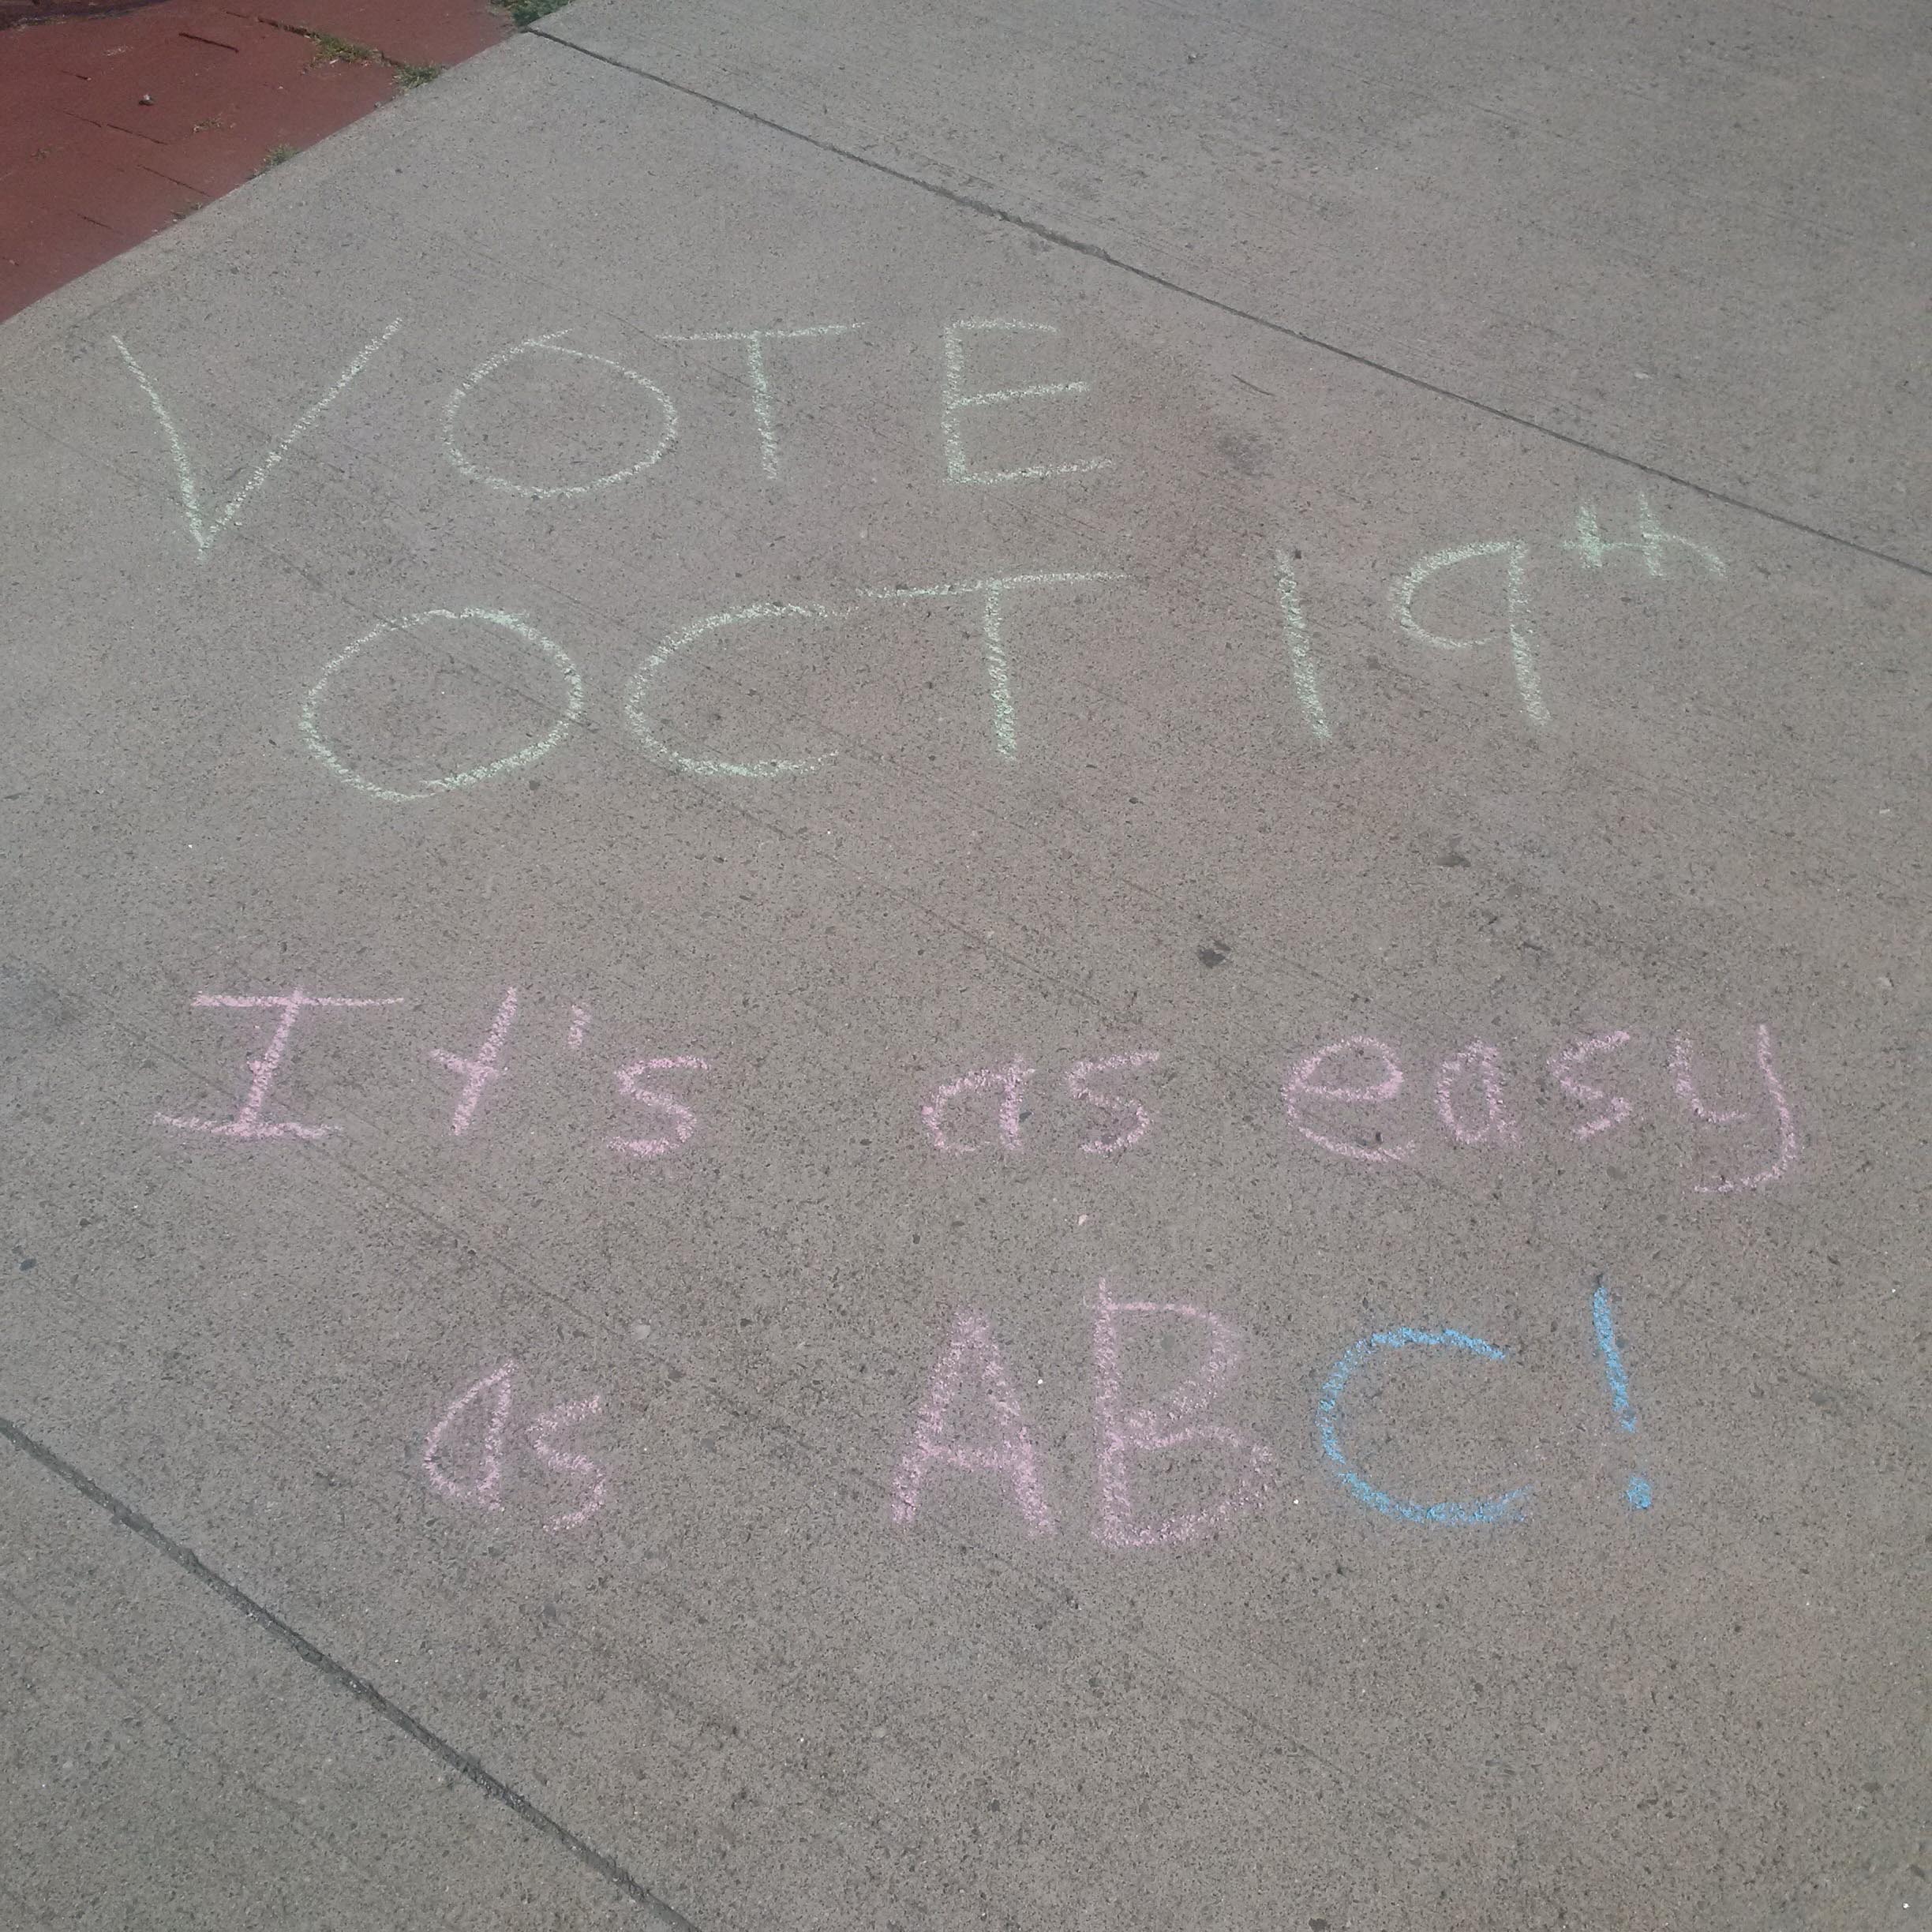 VOTE
OCT 19th
It's as easy
as ABC!